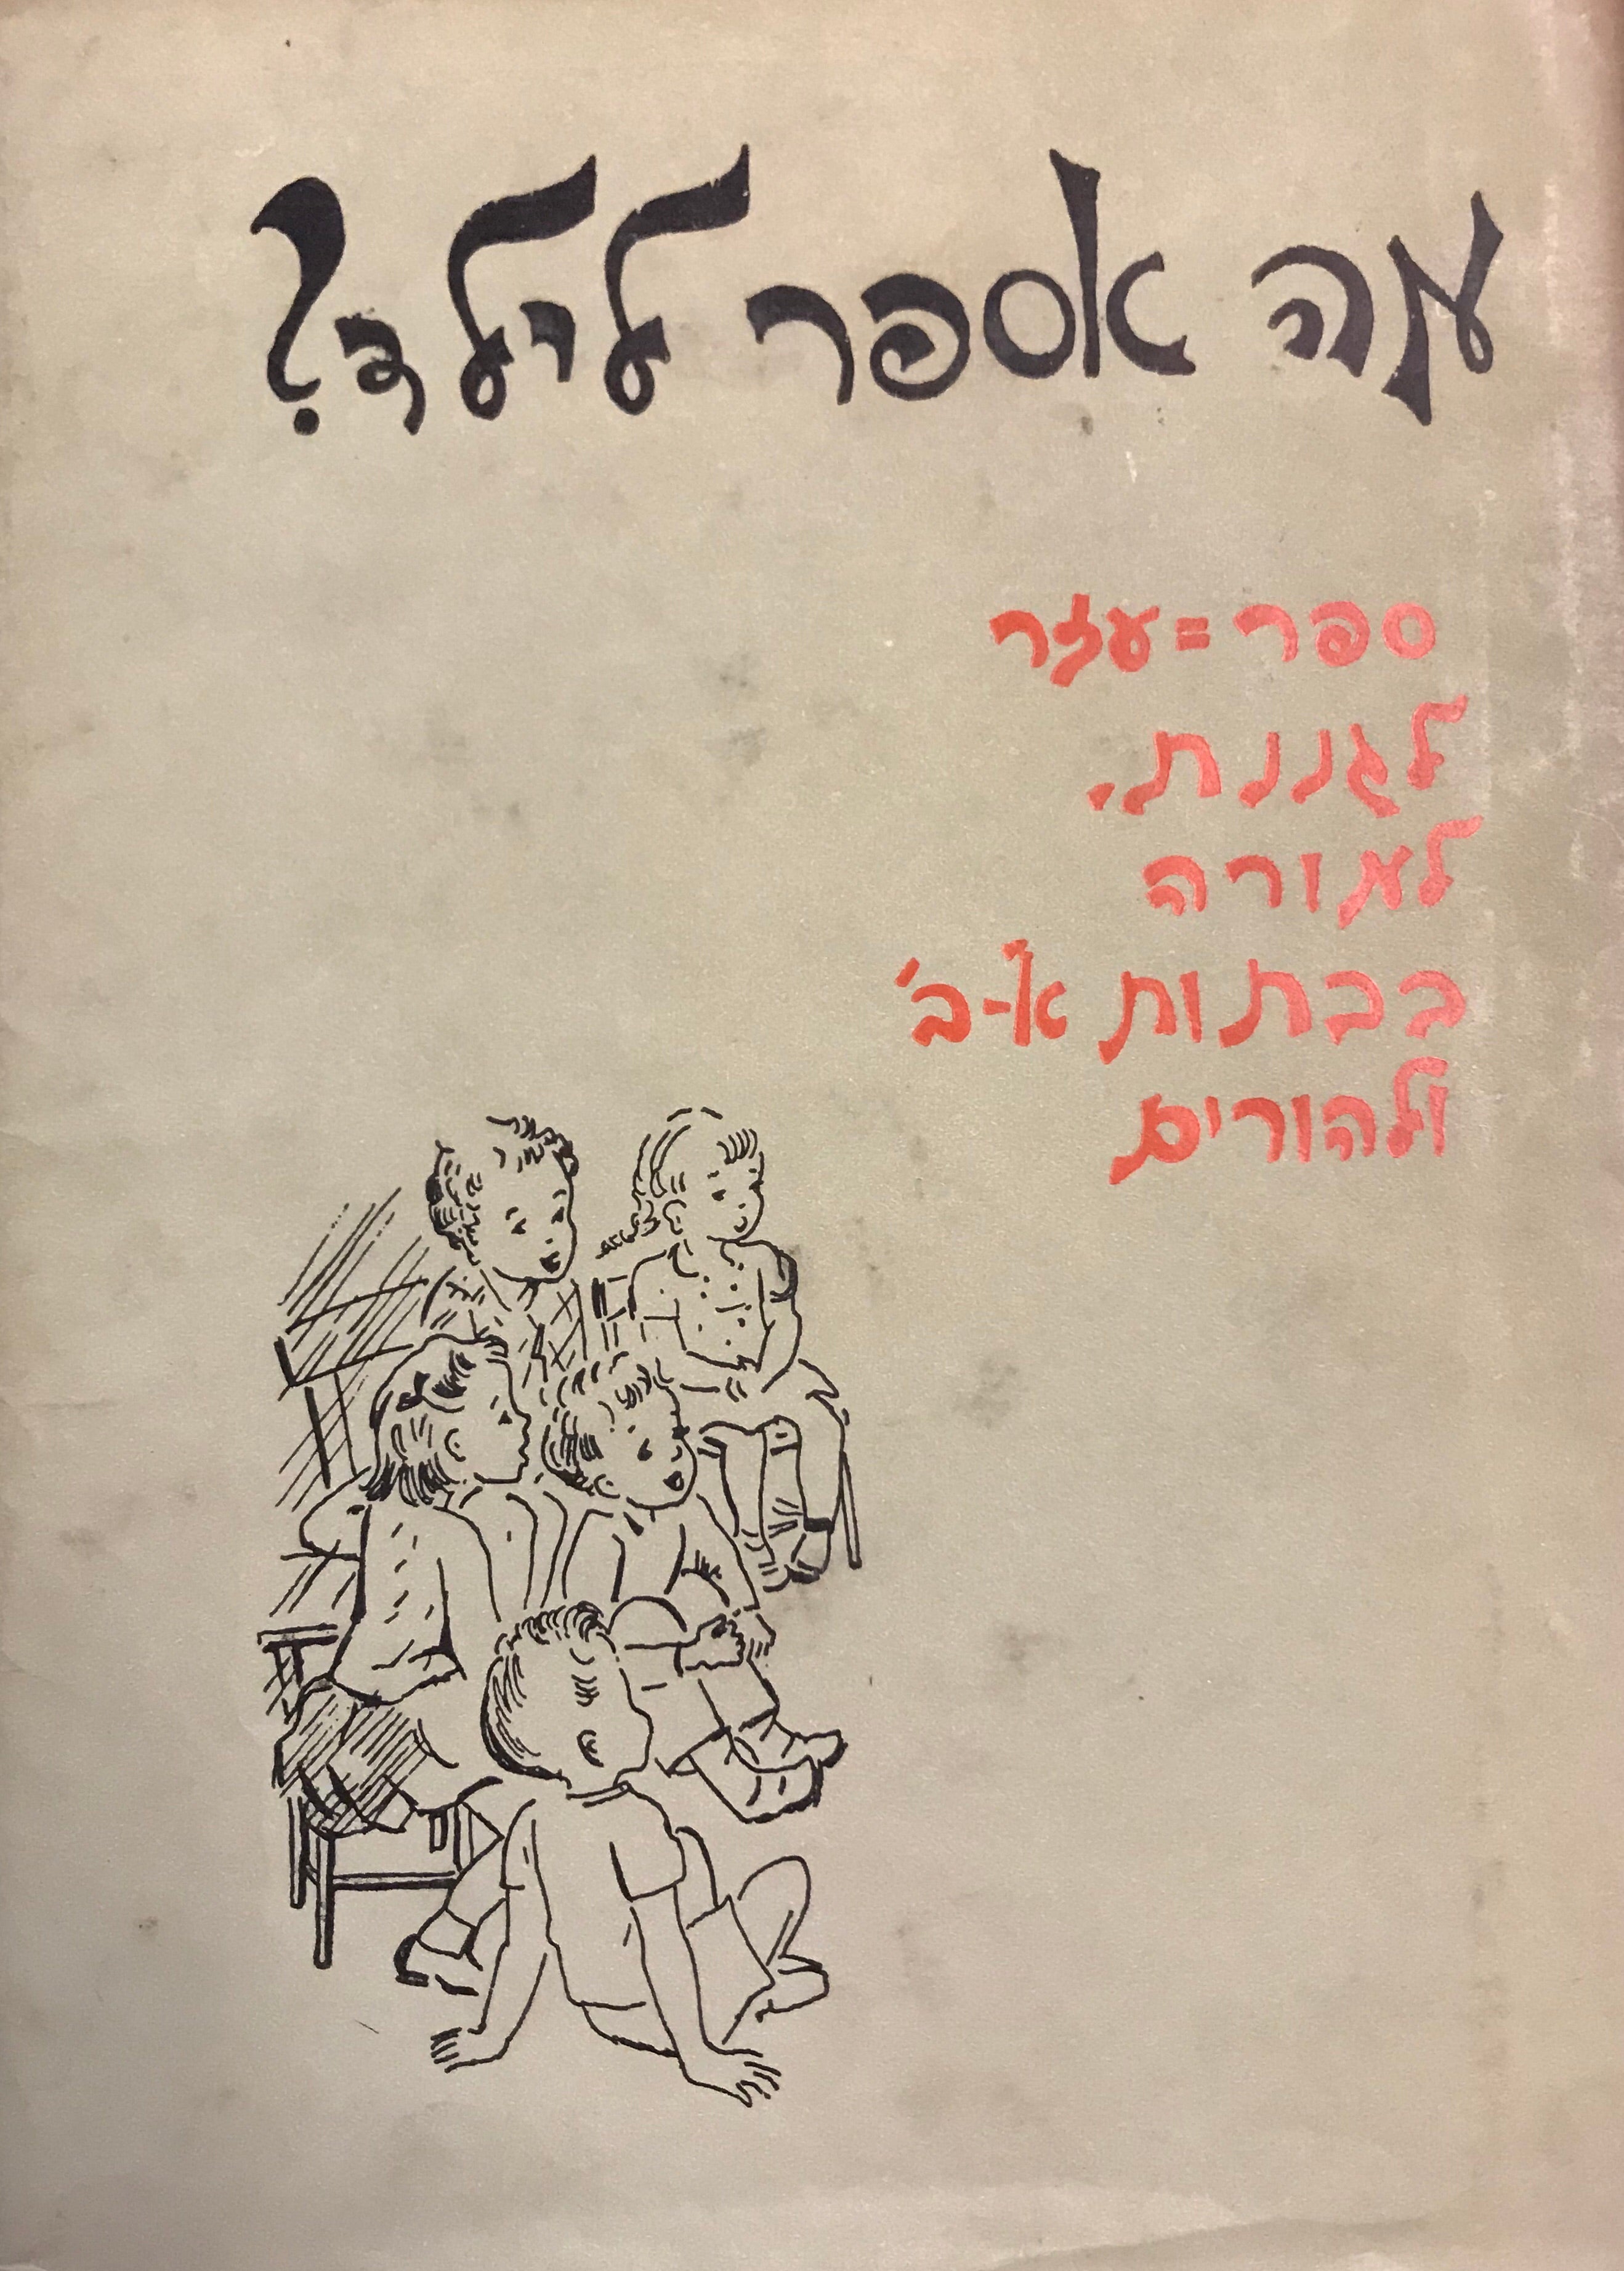 מה אספר לילד?
ספר=עזר
לגננת.
למורה
בכתות א'-ב'
ולהורים